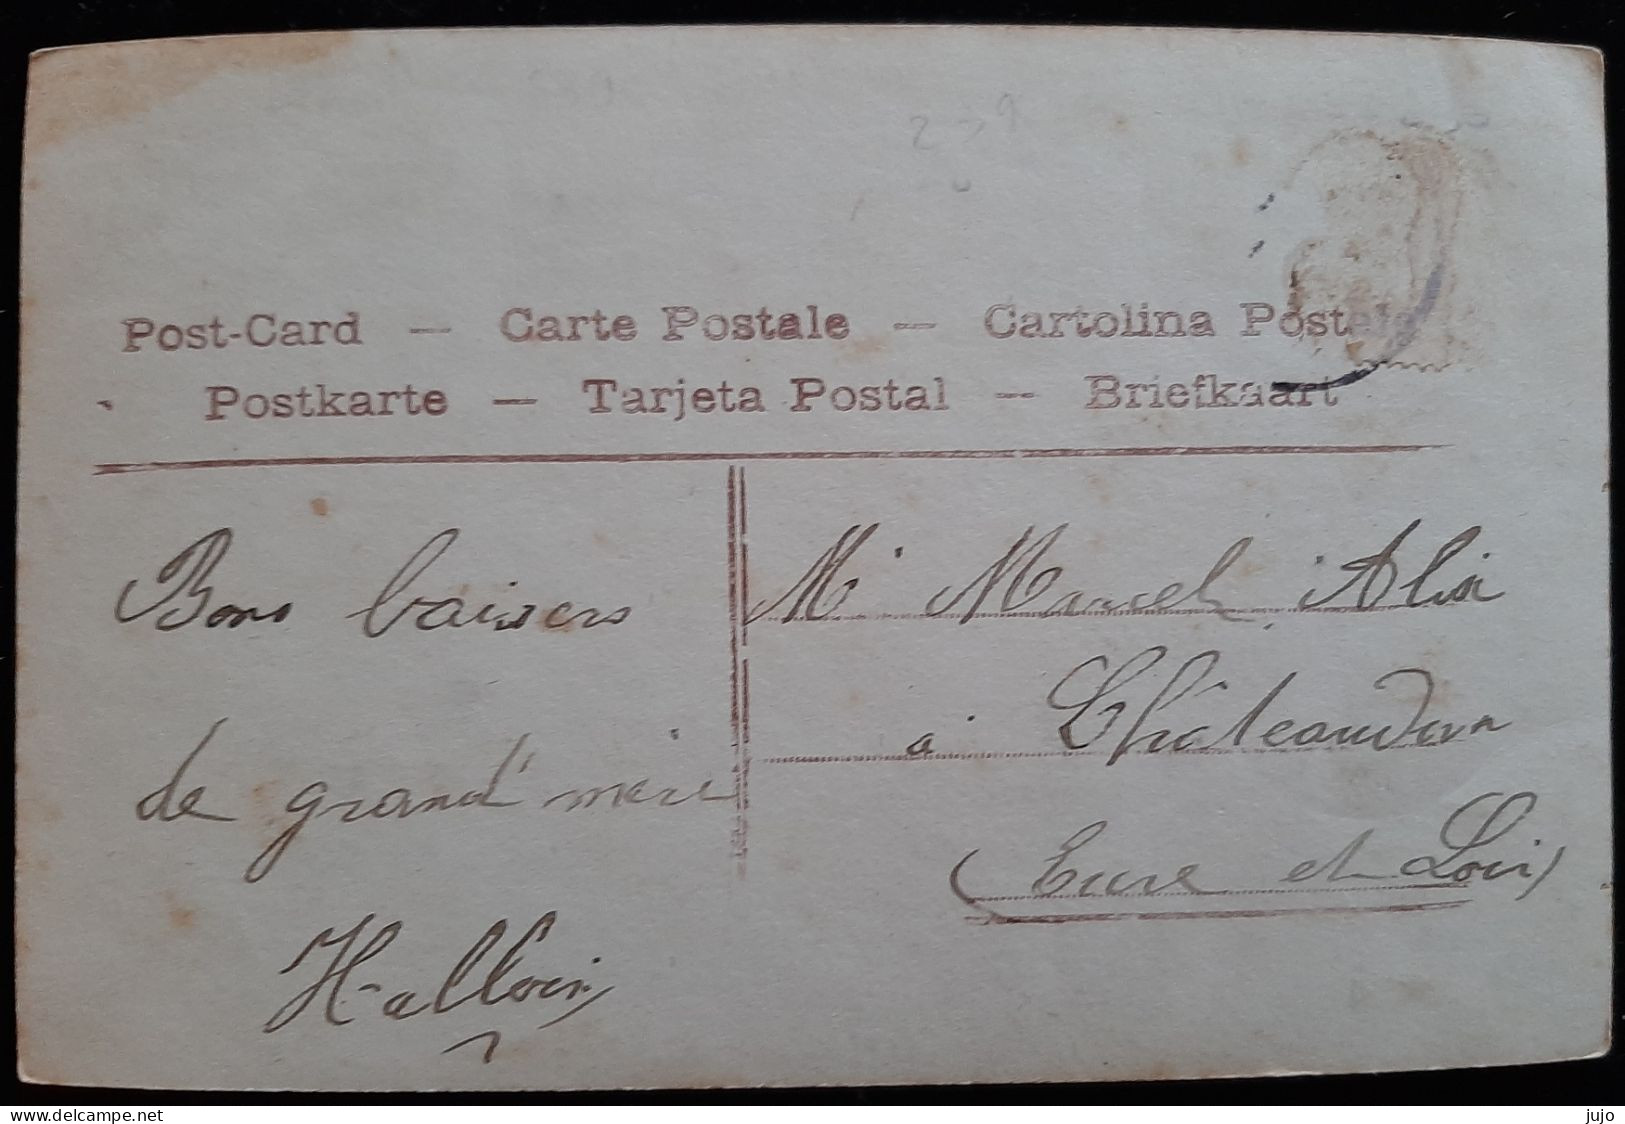 239
Post-Card — Carte Postale — Cartolina Postale
Postkarte — Tarjeta Postal — Briefkaart
Bons baisers
de grand'mère
Halloin
Mr Marcel
à Châteaudun
(Eure et Loir)
delcampe.net
jujo